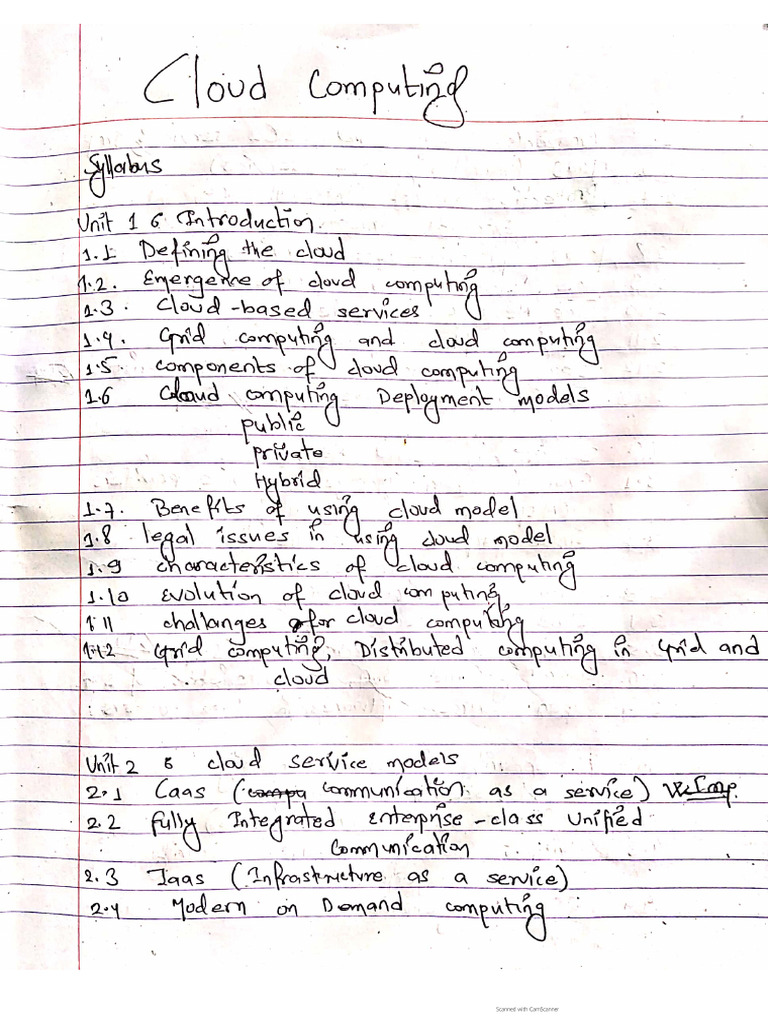 Cloud Computing
Syllabus
Unit 1 : Introduction
1.1 Defining the cloud
1.2. Emergence of cloud computing
1.3. Cloud-based services
1.4. Grid computing and cloud computing
1.5 components of cloud computing
1.6 Cloud computing Deployment models
public
private
Hybrid
1.7. Benefits of using cloud model
1.8 legal issues in using cloud model
1.9 characteristics of cloud computing
1.10 Evolution of cloud computing
1.11 challanges for cloud computing
1.12 Grid computing, Distributed computing in Grid and
cloud
Unit 2 : cloud service models
2.1 Caas (communication as a service)
2.2 fully Integrated Enterprise-class Unified
Communication
2.3 Iaas (Infrastructure as a service)
2.4 Modern on Demand computing
Scanned with CamScanner